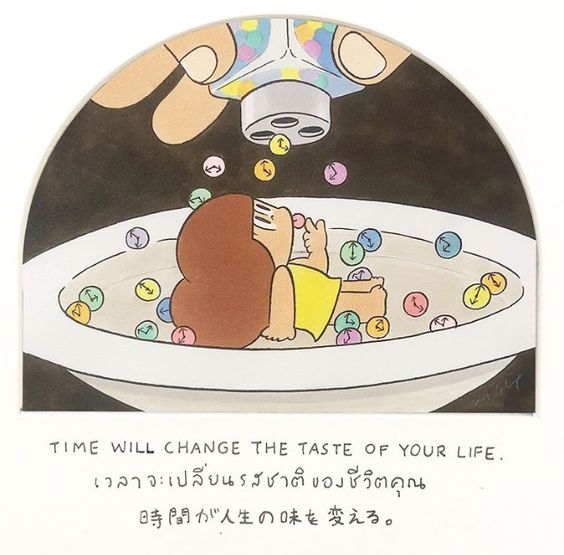 TIME WILL CHANGE THE TASTE OF YOUR LIFE.
เวลาจะเปลี่ยนรสชาติของชีวิตคุณ
時間が人生の味を変える。